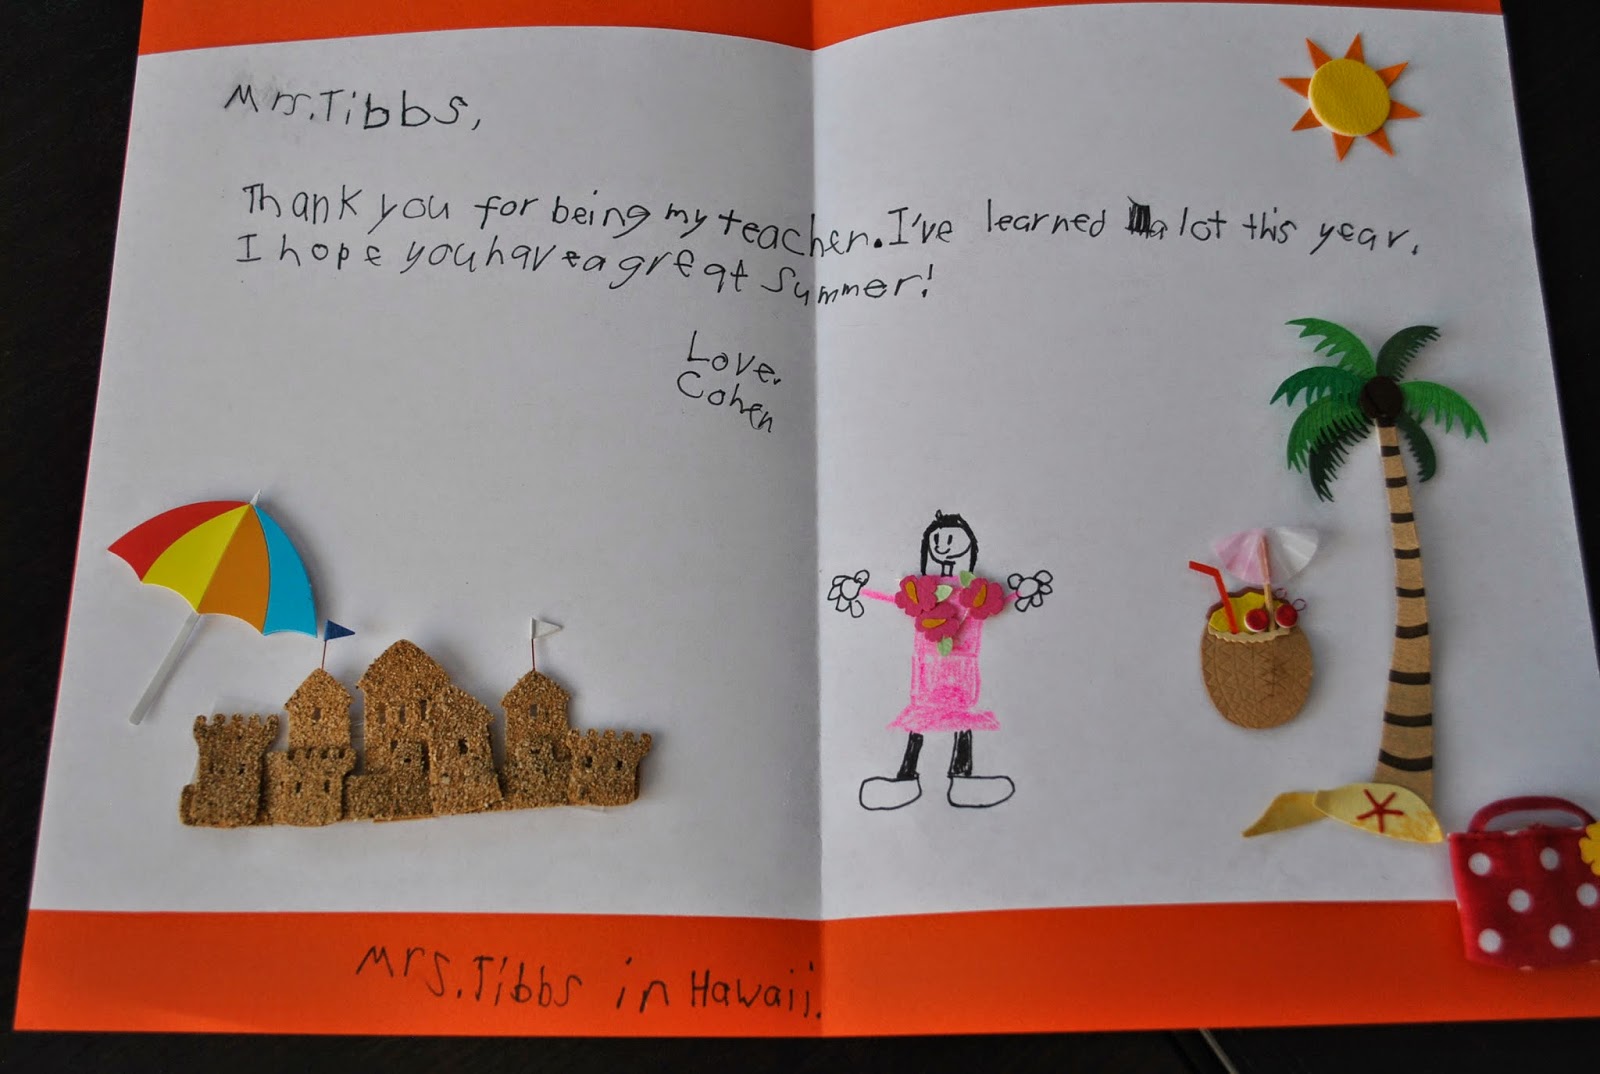 Mrs. Tibbs,
Thank you for being my teacher. I've learned a lot this year.
I hope you have a great summer!
Love,
Cohen
Mrs. Tibbs in Hawaii.